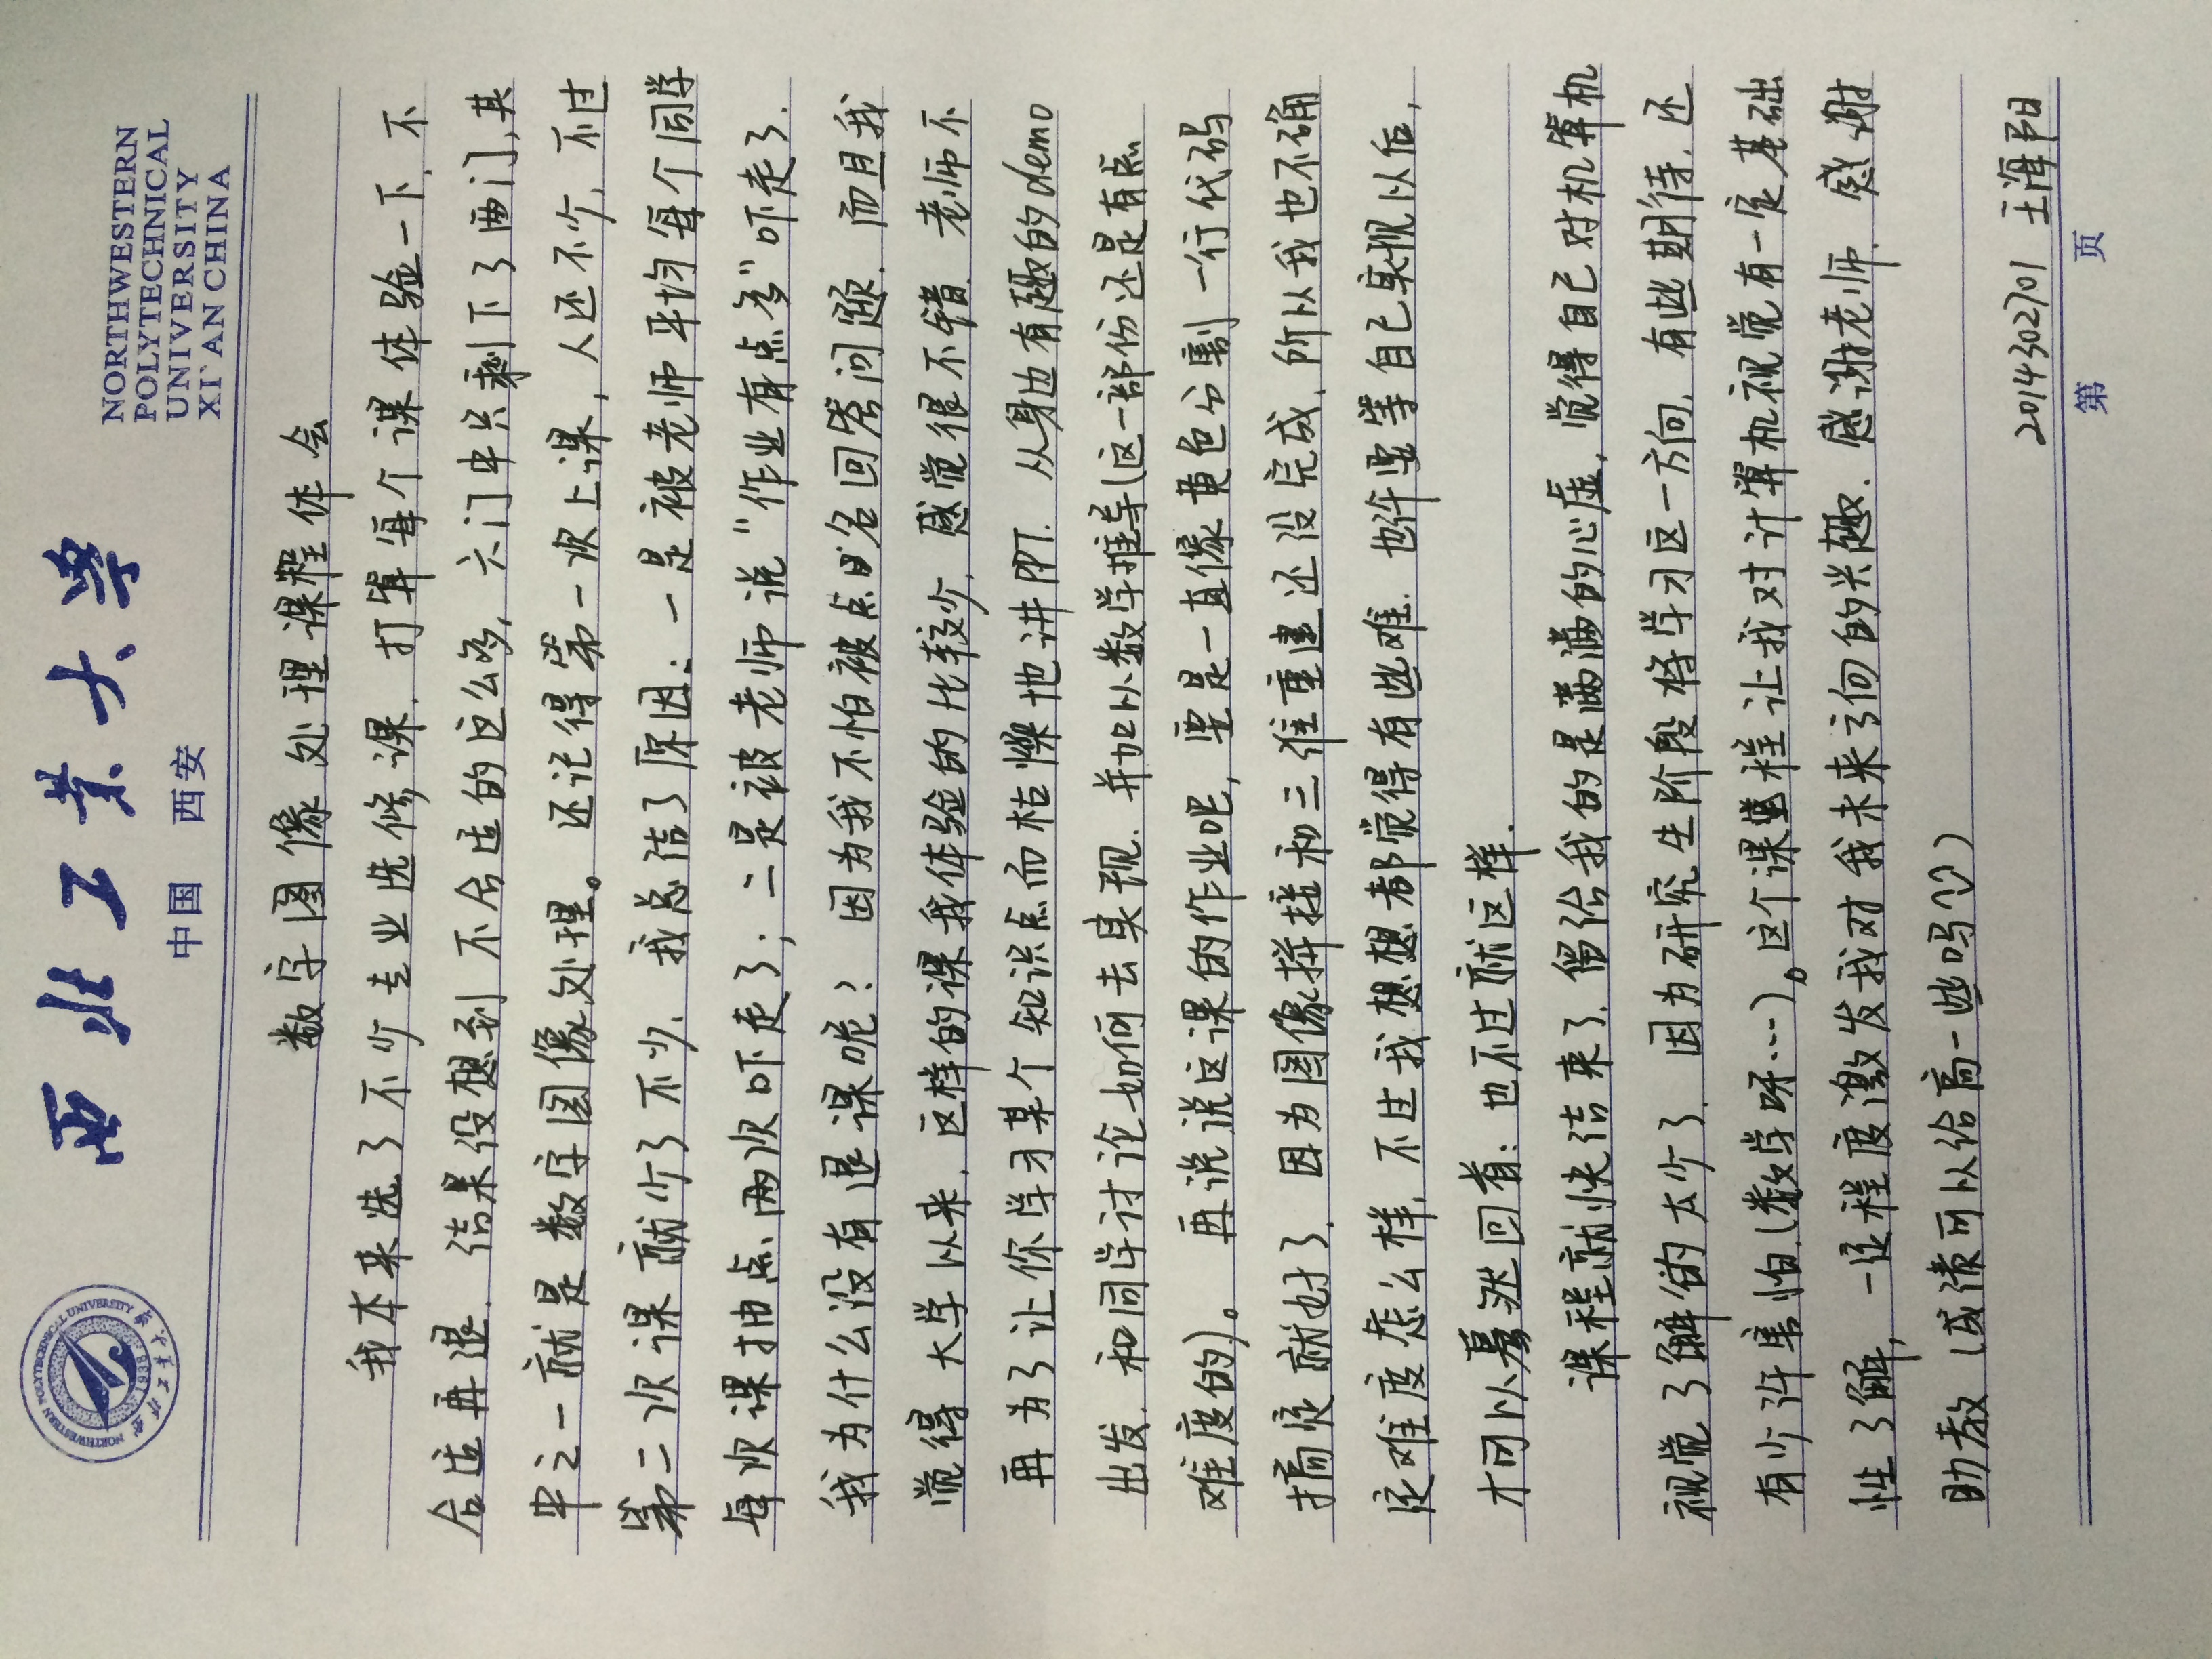 西北工业大学
中国 西安
NORTHWESTERN
POLYTECHNICAL
UNIVERSITY
XI`AN CHINA
数字图像处理课程体会
我本来选了不少专业选修课.打算每个课体验一下,不
合适再退.结果没想到不合适的这么多,六门中只剩下了两门,其
中之一就是数字图像处理。还记得第一次上课,人还不少,不过
第二次课就少了不少,我总结了原因:一是被老师平均每个同学
每次课抽点两次吓走了;二是被老师说"作业有点多"吓走了.
我为什么没有退课呢?因为我不怕被点名回答问题.而且我
觉得大学以来,这样的课我体验的比较少,感觉很不错.老师不
再为了让你学习某个知识点而枯燥地讲PPT.从身边有趣的demo
出发,和同学讨论如何去实现.并加以数学推导(这一部份还是有点
难度的)。再说说这课的作业吧,要是一直像黄色分割一行代码
搞定就好了,因为图像拼接和三维重建还没完成,所以我也不确
定难度怎么样,不过我想想都觉得有些难.也许要等自己实现以后,
才可以蓦然回首:也不过就这样.
课程就快结束了.留给我的是满满的心虚,觉得自己对机算机
视觉了解的太少了.因为研究生阶段将学习这一方向.有些期待.还
有少许害怕(数学呀…)。这个课程让我对计算机视觉有一定基础
性了解,一定程度激发我对我未来方向的兴趣.感谢老师.感谢
助教(成绩可以给高一些吗)
2014302701 王海阳
第 页
NORTHWESTERN POLYTECHNICAL UNIVERSITY
1938
西北工业大学